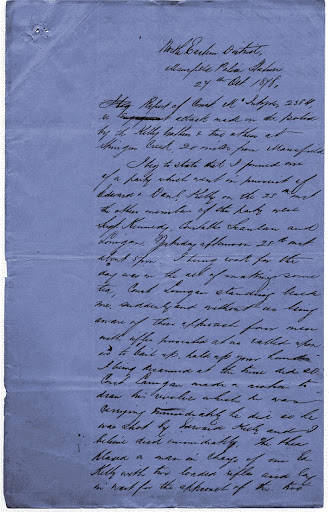 North Eastern District,
Mansfield Police Station
27th Oct 1878,
Report of Const McIntyre, 2334,
in attack made on the Police
by the Kelly brothers & two others at
Creek, 20 miles from Mansfield
I beg to state that I formed one
of a party which went in pursuit of
Edward & Danl Kelly on the 25th inst
the other members of the party were
Sergt Kennedy, Constable Scanlan and
Lonigan. Yesterday afternoon 26th inst
about 5 pm I being cook for the
day was in the act of making some
tea, Const Lonigan standing beside
me, suddenly and without us being
aware of their approach four men
with presented at us called upon
us to bail up, hold up your hands
I being at the time did so
Const Lonigan made a motion to
draw his revolver which he was
carrying immediately he did so he
was shot by Edward Kelly and I
believe died immediately. He then
placed a man in charge of me
Kelly with two loaded rifles and lay
in wait for the approach of the two